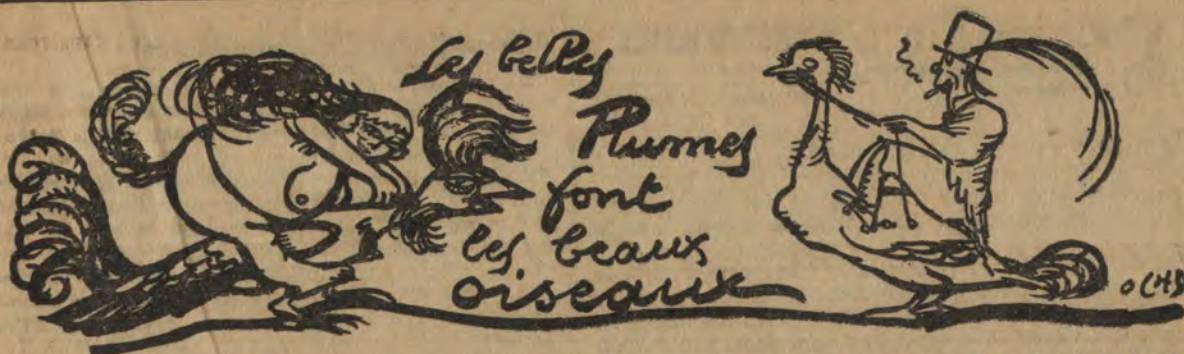 Les belles
Plumes
font
les beaux
oiseaux